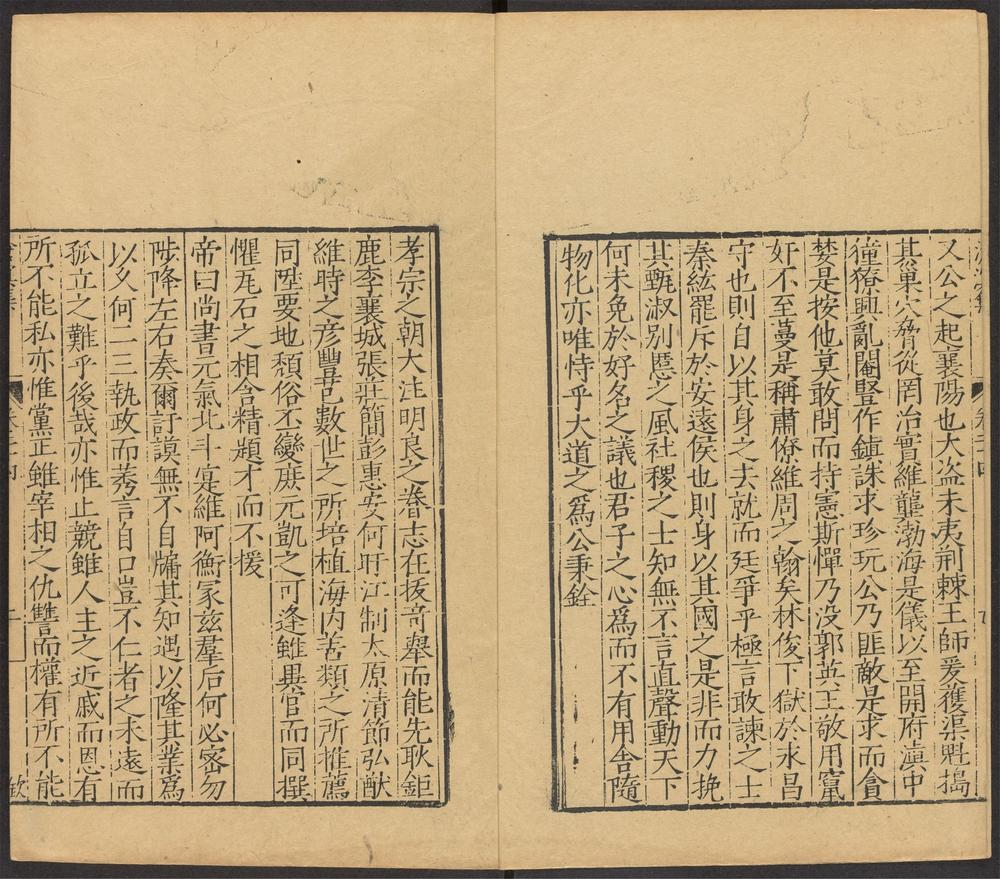 又公之起襄陽也大盗未夷荆棘王師爰獲渠魁搗
其巢穴脅從罔治實維龔渤海是儀以至開府滇中
獞獠興亂閹豎作鎮誅求珍玩公乃匪敵是求而貪
婪是按他莫敢問而持憲斯憚乃没郭英王敬用竄
奸不至蔓是稱肅僚維周之翰矣林俊下獄於永昌
守也則自以其身之去就而廷爭乎極言敢諫之士
秦紘罷斥於安遠侯也則身以其國之是非而力挽
其甄淑别慝之風社稷之士知無不言直聲動天下
何未免於好名之議也君子之心爲而不有用舎隨
物化亦唯恃乎大道之爲公秉銓
孝宗之朝大注明良之眷志在拔竒舉而能先耿鉅
鹿李襄城張莊簡彭惠安何盱江制太原清節弘猷
維時之彦豐芑數世之所培植海内善類之所推薦
同陞要地頽俗丕變庶元凱之可逢雖異官而同撰
懼瓦石之相含精題才而不援
帝曰尚書元氣北斗寔維阿衡冡兹羣后何必密勿
陟降左右奏爾訏謨無不自牖其知遇以隆其業爲
以乆何二三執政而莠言自口豈不仁者之未遠而
孤立之難乎後哉亦惟止競雖人主之近戚而恩有
所不能私亦惟黨正雖宰相之仇讐而權有所不能